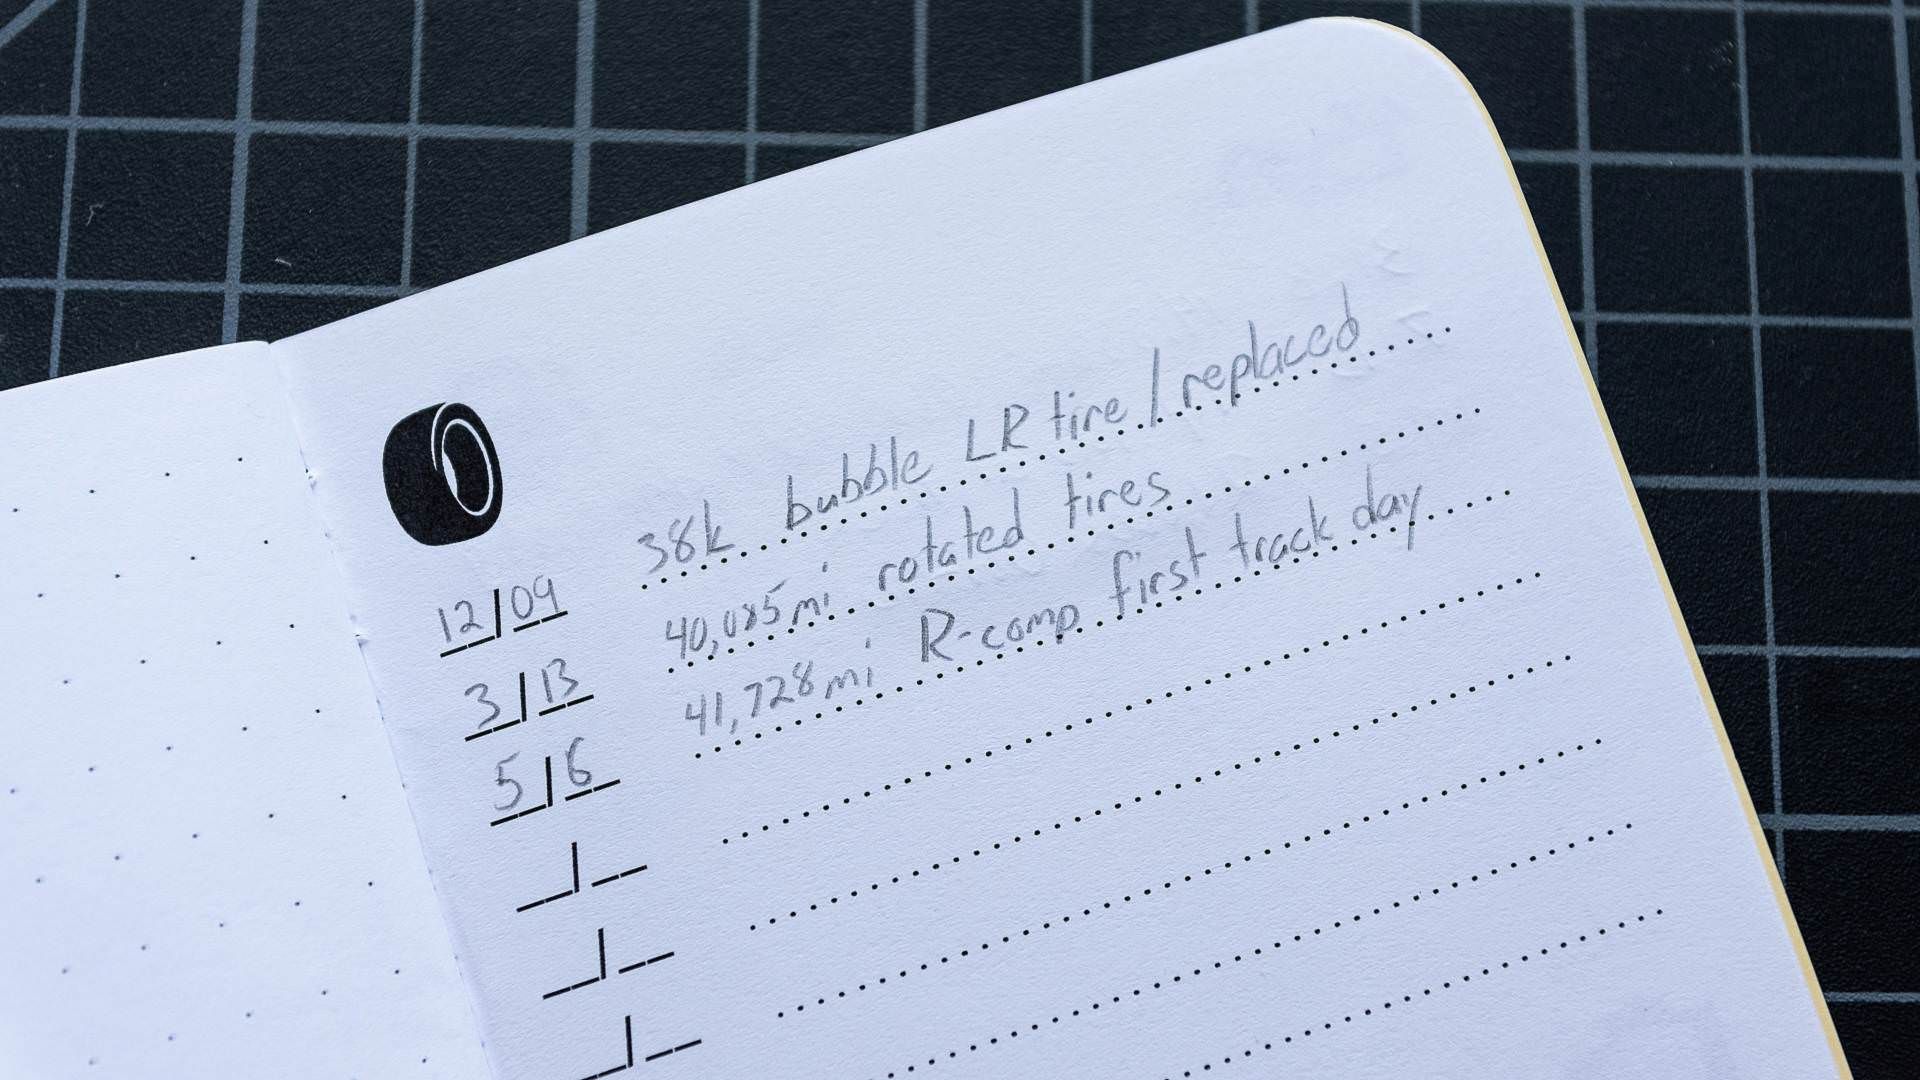 12/09 38k bubble LR tire / replaced
3/13 40,085mi rotated tires
5/6 41,728mi R-comp first track day